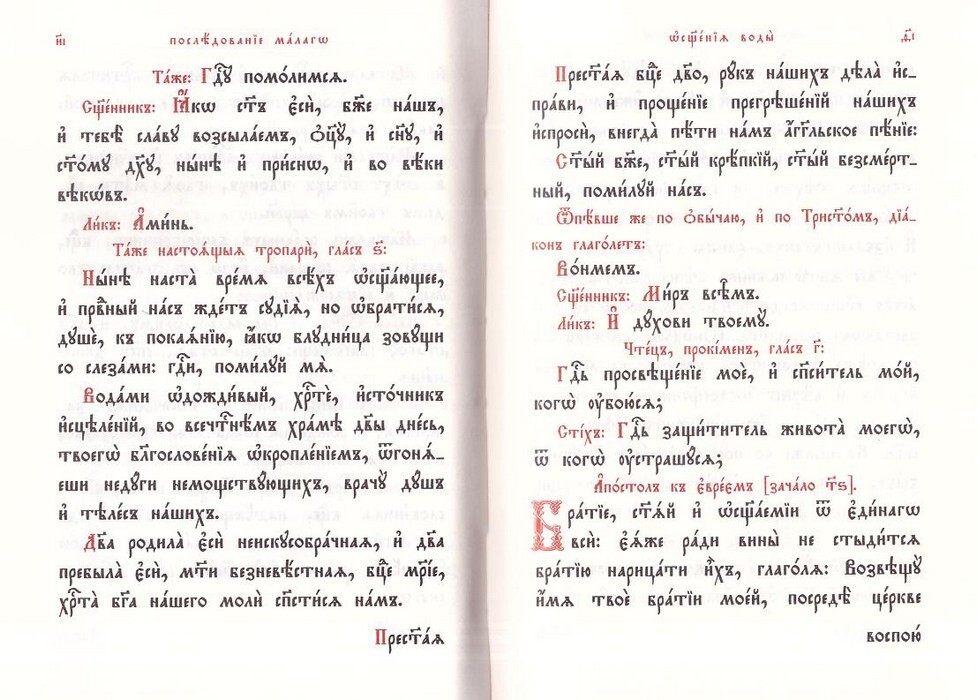 и҃і
послѣ́дованіе ма́лагѡ
Та́же: Гдⷭ҇ꙋ помо́лимсѧ.
Сщ҃е́нникъ: Ꙗ҆́кѡ ст҃ъ є҆сѝ, бж҃е на́шъ,
и҆ тебѣ̀ сла́вꙋ возсыла́емъ, ѻ҆ц҃ꙋ̀, и҆ сн҃ꙋ, и҆
ст҃о́мꙋ дх҃ꙋ, ны́нѣ и҆ при́снѡ, и҆ во вѣ́ки
вѣкѡ́въ.
Ли́къ: А҆ми́нь.
Та́же настоѧ́щыѧ тропари̑, гла́съ ѕ҃:
Ны́нѣ наста̀ вре́мѧ всѣ́хъ ѡ҆сщ҃а́ющее,
и҆ првⷣный на́съ ждє́тъ сꙋдїѧ̀, но ѡ҆брати́сѧ,
дꙋшѐ, къ покаѧ́нїю, ꙗ҆́кѡ блꙋдни́ца зовꙋ́щи
со слеза́ми: гдⷭ҇и, поми́лꙋй мѧ̀.
Вода́ми ѡ҆дожди́вый, хрⷭ҇тѐ, и҆сто́чникъ
и҆сцѣле́нїй, во всечⷭ҇тнѣ́мъ хра́мѣ дв҃ы дне́сь,
твоегѡ̀ блгⷭ҇ове́нїѧ ѡ҆кропле́нїемъ, ѿгонѧ́_
еши недꙋ́ги немощствꙋ́ющихъ, врачꙋ̀ дꙋ́шъ
и҆ тѣле́съ на́шихъ.
Дв҃а родила̀ є҆сѝ неискꙋсобра́чнаѧ, и҆ дв҃а
пребыла̀ є҆сѝ, мт҃и безневѣ́стнаѧ, бцⷣе мр҃і́е,
хрⷭ҇та̀ бг҃а на́шего молѝ сп҃сти́сѧ на́мъ.
Прест҃а́ѧ
ѡ҆сщ҃е́нїѧ воды̀
ѳ҃і
Прест҃а́ѧ бцⷣе дв҃о, рꙋ́къ на́шихъ дѣла̀ и҆с_
пра́ви, и҆ проще́нїе прегрѣше́нїй на́шихъ
и҆спросѝ, внегда̀ пѣ́ти на́мъ а҆́гг҃льское пѣ́нїе:
Ст҃ы́й бж҃е, ст҃ы́й крѣ́пкїй, ст҃ы́й безсме́рт_
ный, поми́лꙋй на́съ.
Ѿпѣ́вше же по ѻ҆бы́чаю, и҆ по Трист҃о́мъ, дїа́_
конъ глаго́летъ:
Во́нмемъ.
Сщ҃е́нникъ: Ми́ръ всѣ̑мъ.
Ли́къ: И҆ дꙋ́хови твоемꙋ̀.
Чте́цъ, прокі́менъ, гла́съ г҃:
Гдⷭ҇ь просвѣще́нїе моѐ, и҆ сп҃си́тель мо́й,
когѡ̀ ᲂу҆бою́сѧ;
Сті́хъ: Гдⷭ҇ь защи́титель живота̀ моегѡ̀,
ѿ когѡ̀ ᲂу҆страшꙋ́сѧ;
А҆по́столъ къ є҆вре́ємъ [зача́ло т҃ѕ].
Бра́тїе, ст҃ѧ́й и҆ ѡ҆сщ҃а́емїи ѿ є҆ди́нагѡ
всѝ: є҆ѧ́же ра́ди вины̀ не стыди́тсѧ
бра́тїю нарица́ти и҆̀хъ, глаго́лѧ: Возвѣщꙋ̀
и҆́мѧ твоѐ бра́тїи мое́й, посредѣ̀ це́ркве
воспою́